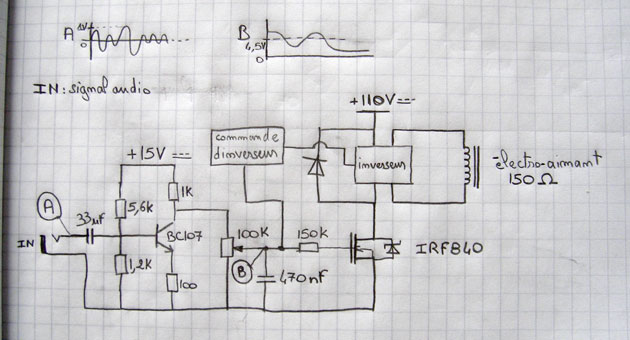 A 1V+ 0
B 4,5V 0
IN : signal audio
+110V
commande
d'inverseur
inverseur
électro-aimant
150Ω
+15V
1K
5,6K
A
33µF
IN
BC107
100K
150K
IRF840
B
1,2K
100
470nF